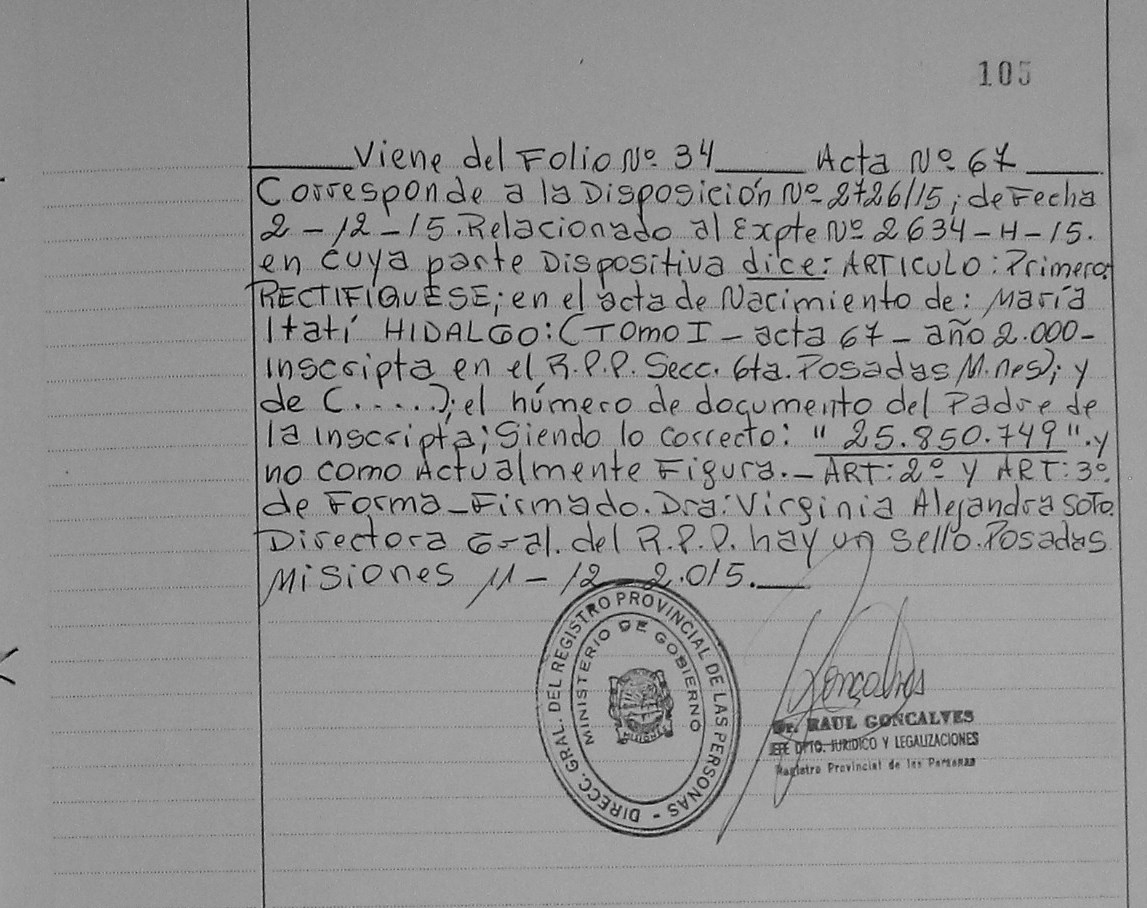 105
Viene del Folio Nº 34 Acta Nº 67
Corresponde a la Disposición Nº 2726/15; de Fecha
2-12-15. Relacionado al Expte Nº 2634-H-15.
en cuya parte Dispositiva dice: ARTICULO: Primero:
RECTIFIQUESE; en el acta de Nacimiento de: María
Itatí HIDALGO: (Tomo I - acta 67 - año 2.000-
Inscripta en el R.P.P. Secc. 6ta. Posadas M.nes); y
de (.....); el número de documento del Padre de
la inscripta; Siendo lo correcto: "25.850.749". y
no como Actualmente Figura.- ART: 2º y ART: 3º.
de Forma-Firmado. Dra: Virginia Alejandra Soto.
Directora Gral. del R.P.P. hay un sello. Posadas
Misiones 11-12-2.015.
DIRECC. GRAL. DEL REGISTRO PROVINCIAL DE LAS PERSONAS -
MINISTERIO DE GOBIERNO
MISIONES
Goncalves
Dr. RAUL GONCALVES
JEFE DPTO. JURIDICO Y LEGALIZACIONES
Registro Provincial de las Personas